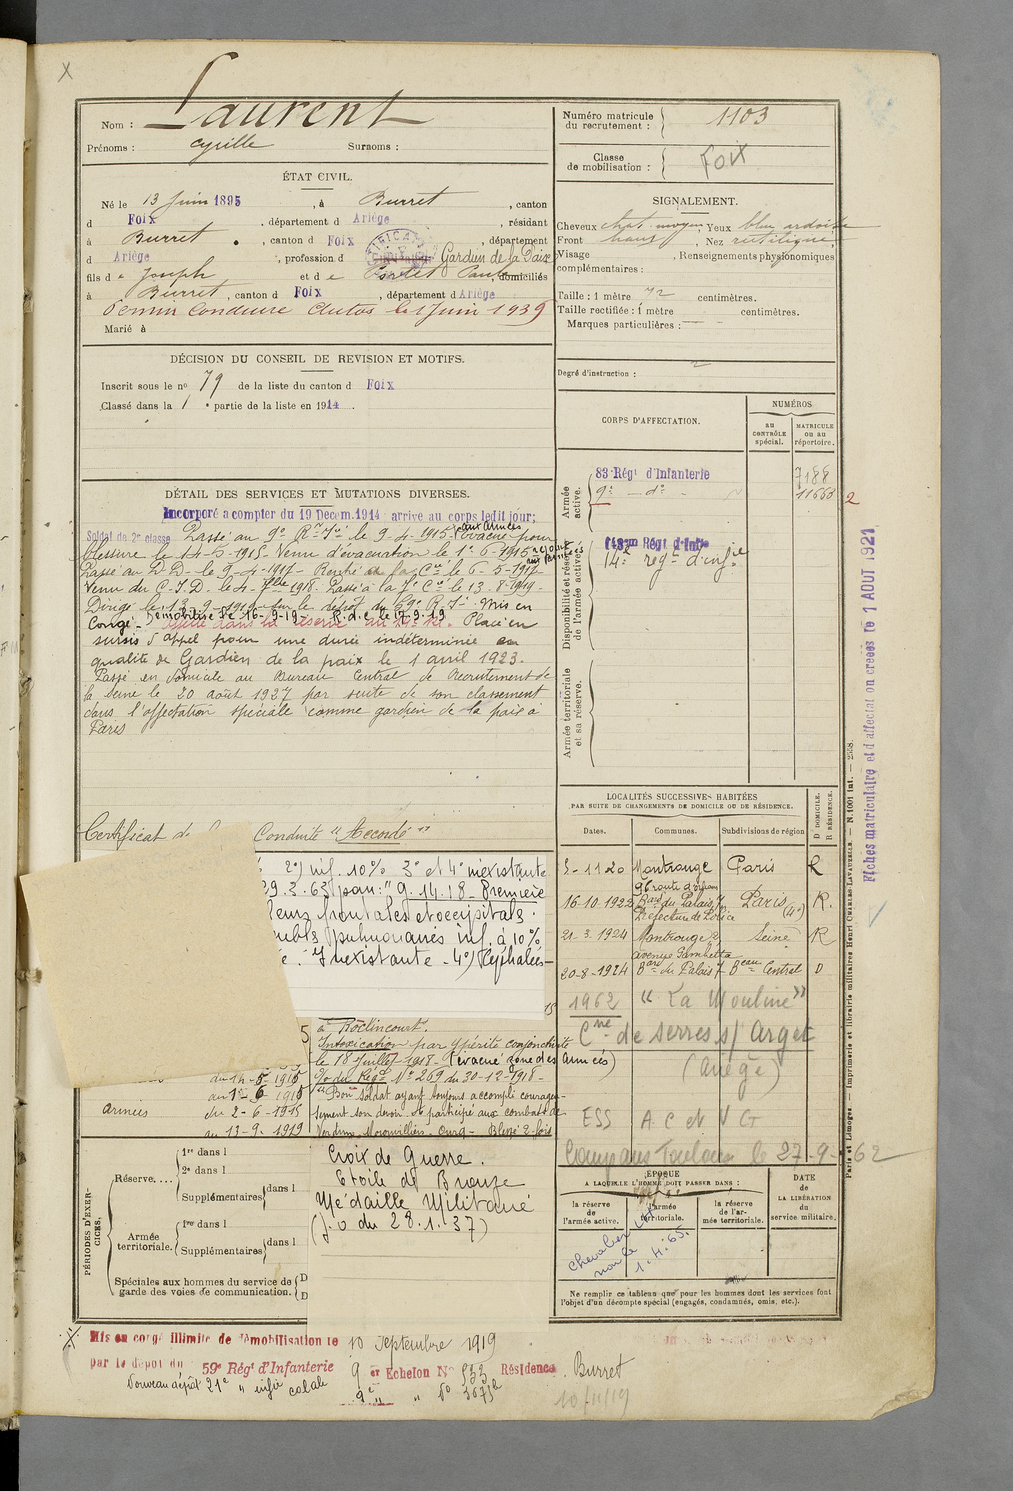 Nom : Laurent
Prénoms : Cyrille Surnoms :
Numéro matricule du recrutement : 1103
Classe de mobilisation : Foix
ÉTAT CIVIL.
Né le 13 Juin 1895, à Burret, canton
d Foix, département d Ariège, résidant
à Burret, canton d Foix, département
d Ariège, profession d Gardien de la Paix
fils de Joseph et de Portet Paule, domiciliés
à Burret, canton d Foix, département d Ariège
Permis Conduire Autos le 1 Juin 1939
Marié à
SIGNALEMENT.
Cheveux chat. moyen Yeux bleu ardoisé
Front haut, Nez rectiligne,
Visage , Renseignements physionomiques
complémentaires :
Taille : 1 mètre 72 centimètres.
Taille rectifiée : 1 mètre centimètres.
Marques particulières :
Degré d'instruction : 2
DÉCISION DU CONSEIL DE REVISION ET MOTIFS.
Inscrit sous le no 79 de la liste du canton d Foix
Classé dans la 1 e partie de la liste en 1914.
CORPS D'AFFECTATION.
NUMÉROS
au CONTRÔLE spécial.
MATRICULE ou au répertoire.
Armée active.
83 Régt d'Infanterie 7188
9e do 11663
2
Disponibilité et réserve de l'armée active.
14e regt d'infie
Armée territoriale et sa réserve.
DÉTAIL DES SERVICES ET MUTATIONS DIVERSES.
Incorporé a compter du 19 Decem. 1914 arrivé au corps ledit jour;
Soldat de 2e classe Passé au 9e Rt Ie le 9-4-1915 aux Armées Evacué pour
blessure le 14-5-1915. Venu d'évacuation le 1er 6-1915
Passé au D.D. le 9-4-1917. Rentré la Cie le 6-5-1917
Venu du C.I.D. le 4-7bre 1918. Passé à la 7e Cie le 13-8-1919.
Dirigé le 13-9-1919 sur le dépôt du 59e R.I. Mis en
Congé. Démobilisé le 16-9-19 R.d.c. le 17-9-19 Placé en
sursis d'appel pour une durée indéterminée en
qualité de Gardien de la paix le 1 avril 1923.
Passé en domicile au Bureau Central de Recrutement de
la Seine le 20 août 1927 par suite de son classement
dans l'affectation spéciale comme gardien de la paix à
Paris
Certificat de Conduite "Accordé"
2o) inf. 10% 3o et 4o inexistante
29.3.63 pan: "9.14.18 Première
frontales et occipitals.
pulmonaires inf. à 10%
Inexistante - 4o) Céphalées
à Roclincourt.
Intoxication par ypérite conjonctivite
le 18 Juillet 1918 (évacué zone des Armées)
O/ du Régt No 269 du 30-12-1918-
"Bon soldat ayant toujours accompli courageu-
sement son devoir a participé aux combats de
Verdun, Moronvilliers, Ourcq - Blessé 2 fois
du 14-5-1915
au 1-6-1915
Armées du 2-6-1915
au 13-9-1919
Croix de Guerre.
Etoile de Bronze
Médaille Militaire
(J.O du 28.1.37)
LOCALITÉS SUCCESSIVES HABITÉES
PAR SUITE DE CHANGEMENTS DE DOMICILE OU DE RÉSIDENCE.
Dates. Communes. Subdivisions de région D DOMICILE. R RÉSIDENCE.
3-11 20 Montrouge Paris R
96 route d'Orléans
16-10-1922 Bard du Palais, 7 Paris (4e) R.
Préfecture de Police
21-3-1924 Montrouge 2, Seine R
avenue Gambetta
20-8-1924 Bard du Palais 7 Beau Central D
1962 "La Mouline"
Cne de Serres s/ Arget
(Ariège)
ESS A C et V G
Compans Toulouse le 27-9-62
ÉPOQUE
A LAQUELLE L'HOMME DOIT PASSER DANS :
la réserve de l'armée active.
l'armée territoriale.
la réserve de l'armée territoriale.
DATE de LA LIBÉRATION du service militaire.
Chevalier LH
1.4.65.
Ne remplir ce tableau que pour les hommes dont les services font
l'objet d'un décompte spécial (engagés, condamnés, omis, etc.).
PÉRIODES D'EXERCICES.
Réserve.... 1re dans l
2e dans l
Supplémentaires dans l
Armée territoriale. 1re dans l
Supplémentaires dans l
Spéciales aux hommes du service de garde des voies de communication. D D
Mis en congé illimité de démobilisation le 10 Septembre 1919
par le dépôt du 59e Régt d'Infanterie 9 er Echelon No 533 Résidence Burret
Nouveau dépôt 21e " infie colale
10/11/19
Fiches matriculaire et d'affectation créées le 1 AOUT 1921
Paris et Limoges. — Imprimerie et librairie militaires Henri CHARLES-LAVAUZELLE. — N. 1001 int.